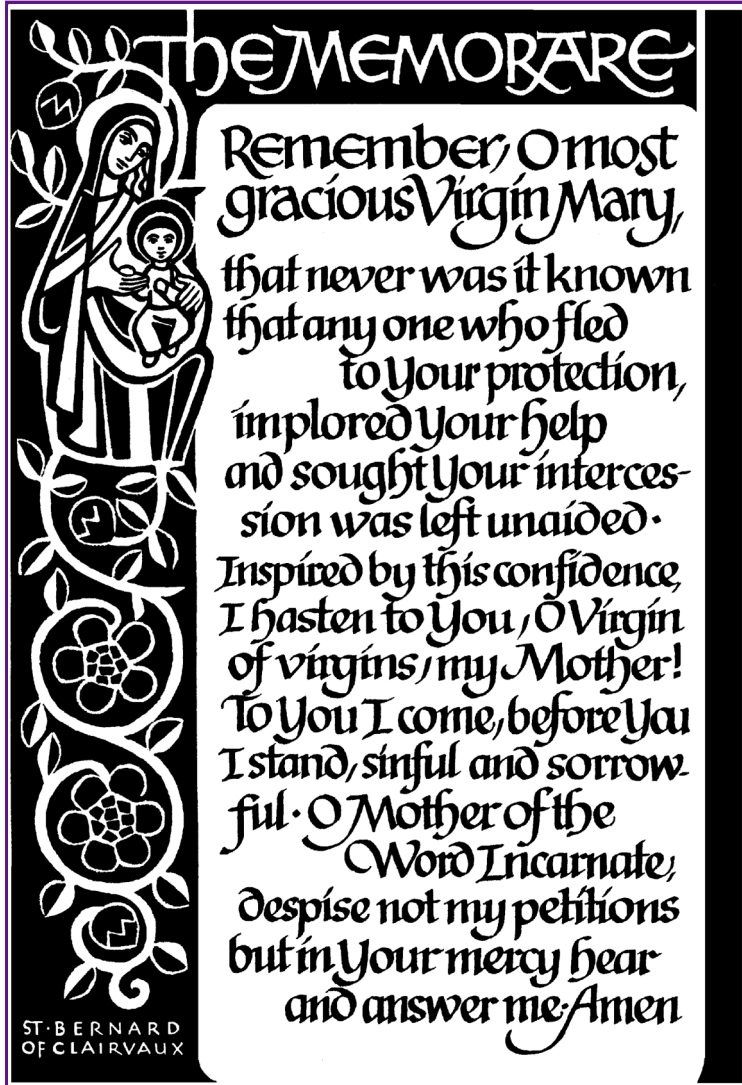 The MEMORARE
Remember, O most
gracious Virgin Mary,
that never was it known
that any one who fled
to Your protection,
implored Your help
and sought Your interces-
sion was left unaided·
Inspired by this confidence,
I hasten to You, O Virgin
of virgins, my Mother!
To You I come, before You
I stand, sinful and sorrow-
ful· O Mother of the
Word Incarnate,
despise not my petitions
but in Your mercy hear
and answer me· Amen
ST·BERNARD
OF CLAIRVAUX